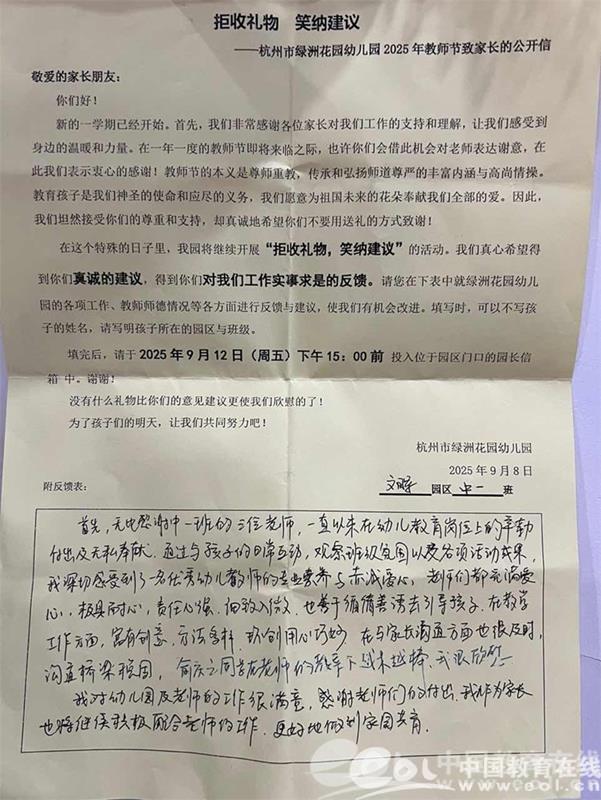 拒收礼物　笑纳建议
——杭州市绿洲花园幼儿园 2025 年教师节致家长的公开信
敬爱的家长朋友：
你们好！
新的一学期已经开始。首先，我们非常感谢各位家长对我们工作的支持和理解，让我们感受到
身边的温暖和力量。在一年一度的教师节即将来临之际，也许你们会借此机会对老师表达谢意，在
此我们表示衷心的感谢！教师节的本义是尊师重教，传承和弘扬师道尊严的丰富内涵与高尚情操。
教育孩子是我们神圣的使命和应尽的义务，我们愿意为祖国未来的花朵奉献我们全部的爱。因此，
我们坦然接受你们的尊重和支持，却真诚地希望你们不要用送礼的方式致谢！
在这个特殊的日子里，我园将继续开展“拒收礼物，笑纳建议”的活动。我们真心希望得
到你们真诚的建议，得到你们对我们工作实事求是的反馈。请您在下表中就绿洲花园幼儿
园的各项工作、教师师德情况等各方面进行反馈与建议，使我们有机会改进。填写时，可以不写孩
子的姓名，请写明孩子所在的园区与班级。
填完后，请于 2025 年 9 月 12 日（周五）下午 15：00 前 投入位于园区门口的园长信
箱 中。谢谢！
没有什么礼物比你们的意见建议更使我们欣慰的了！
为了孩子们的明天，让我们共同努力吧！
杭州市绿洲花园幼儿园
2025 年 9 月 8 日
附反馈表： 文晖 园区 中一 班
首先，无比感谢中一班的三位老师，一直以来在幼儿教育岗位上的辛勤
付出及无私奉献。通过与孩子的日常互动，观察班级氛围以及各项活动成果，
我深切感受到了一名优秀幼儿教师的专业素养与赤诚爱心，老师们都充满爱
心，极具耐心，责任心强，细致入微，也善于循循善诱去引导孩子。在教学
工作方面，富有创意，方法多样，用心巧妙 在与家长沟通方面也很及时，
沟通桥梁稳固，老师的教导下越来越棒，我很欣慰
我对幼儿园及老师的工作很满意，感谢老师们的付出，我作为家长
也将继续积极配合老师的工作，更好地做到家园共育。
中国教育在线
www.eol.cn